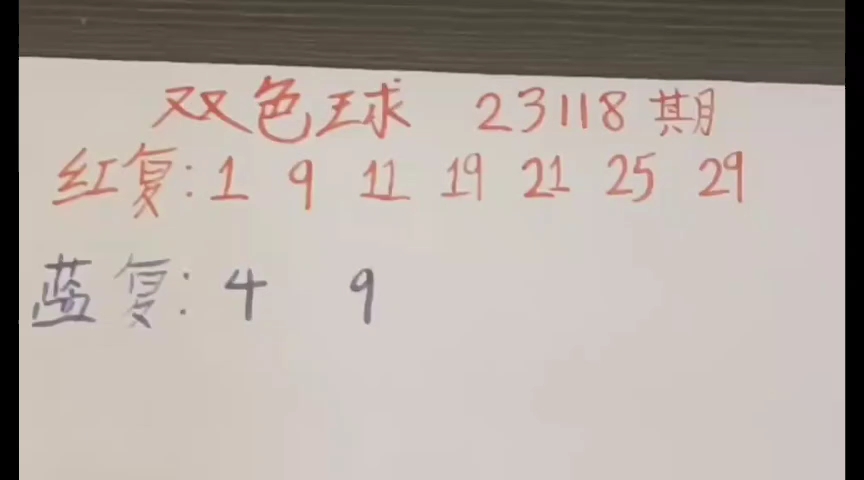 双色球 23118期
红复:1 9 11 19 21 25 29
蓝复:4 9